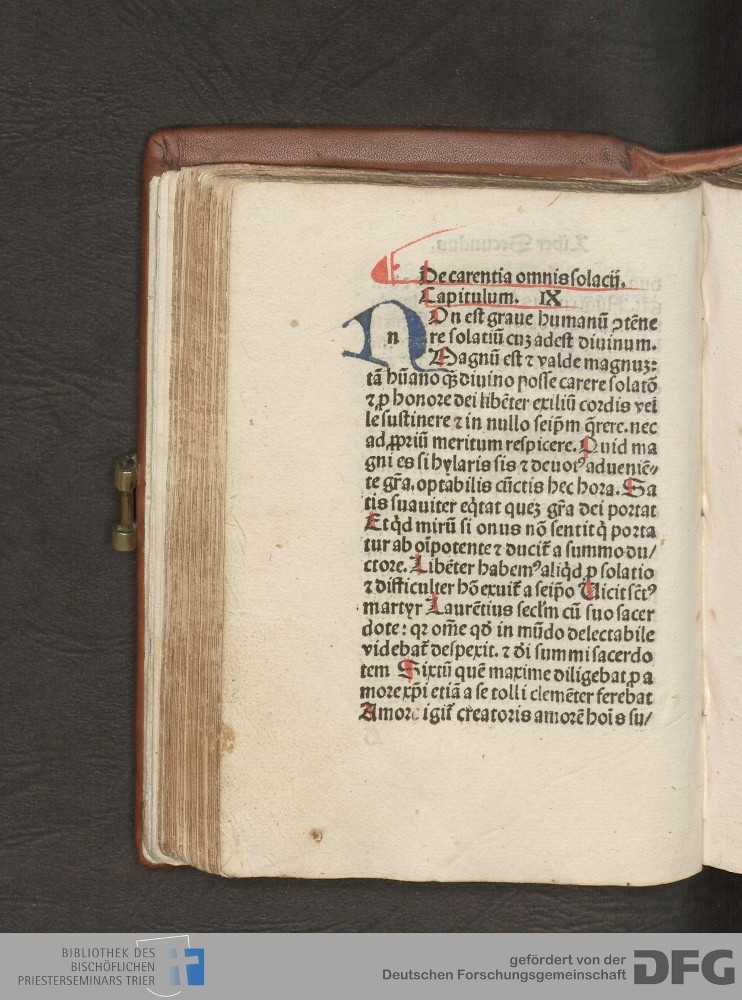 De carentia omnis solacij.
Capitulum. IX
NOn est graue humanū ꝯtēne
re solatiū cuꝫ adest diuinum.
Magnū est ⁊ valde magnuꝫ:
tā hūano qꝫ̄ diuino posse carere solatō
⁊ ꝓ honore dei libēter exiliū cordis vel
le sustinere ⁊ in nullo seip̄m q̄rere. nec
ad ꝓpriū meritum respicere. Quid ma
gni es si hylaris sis ⁊ deuotꝰ adueniē⸗
te gr̄a. optabilis cūctis hec hora. Sa
tis suauiter eq̇tat queꝫ gr̄a dei portat
Et qd̓ mirū si onus nō sentit q̇ porta
tur ab oīpotente ⁊ ducit̄ a summo du/
ctore. Libēter habemꝰ aliqd̓ ꝓ solatio
⁊ difficulter hō exuit̄ a seip̄o Uicit sct̄ꝰ
martyr Laurētius secl̄m cū suo sacer
dote: qꝛ om̄e qd̓ in mūdo delectabile
videbat̄ despexit. ⁊ dei summi sacerdo
tem Sixtū quē maxime diligebat ꝓ a
more xp̄i etiā a se tolli clemēter ferebat
Amore igit̄ creatoris amorē hoīs su/
BIBLIOTHEK DES
BISCHÖFLICHEN
PRIESTERSEMINARS TRIER
gefördert von der
Deutschen Forschungsgemeinschaft
DFG